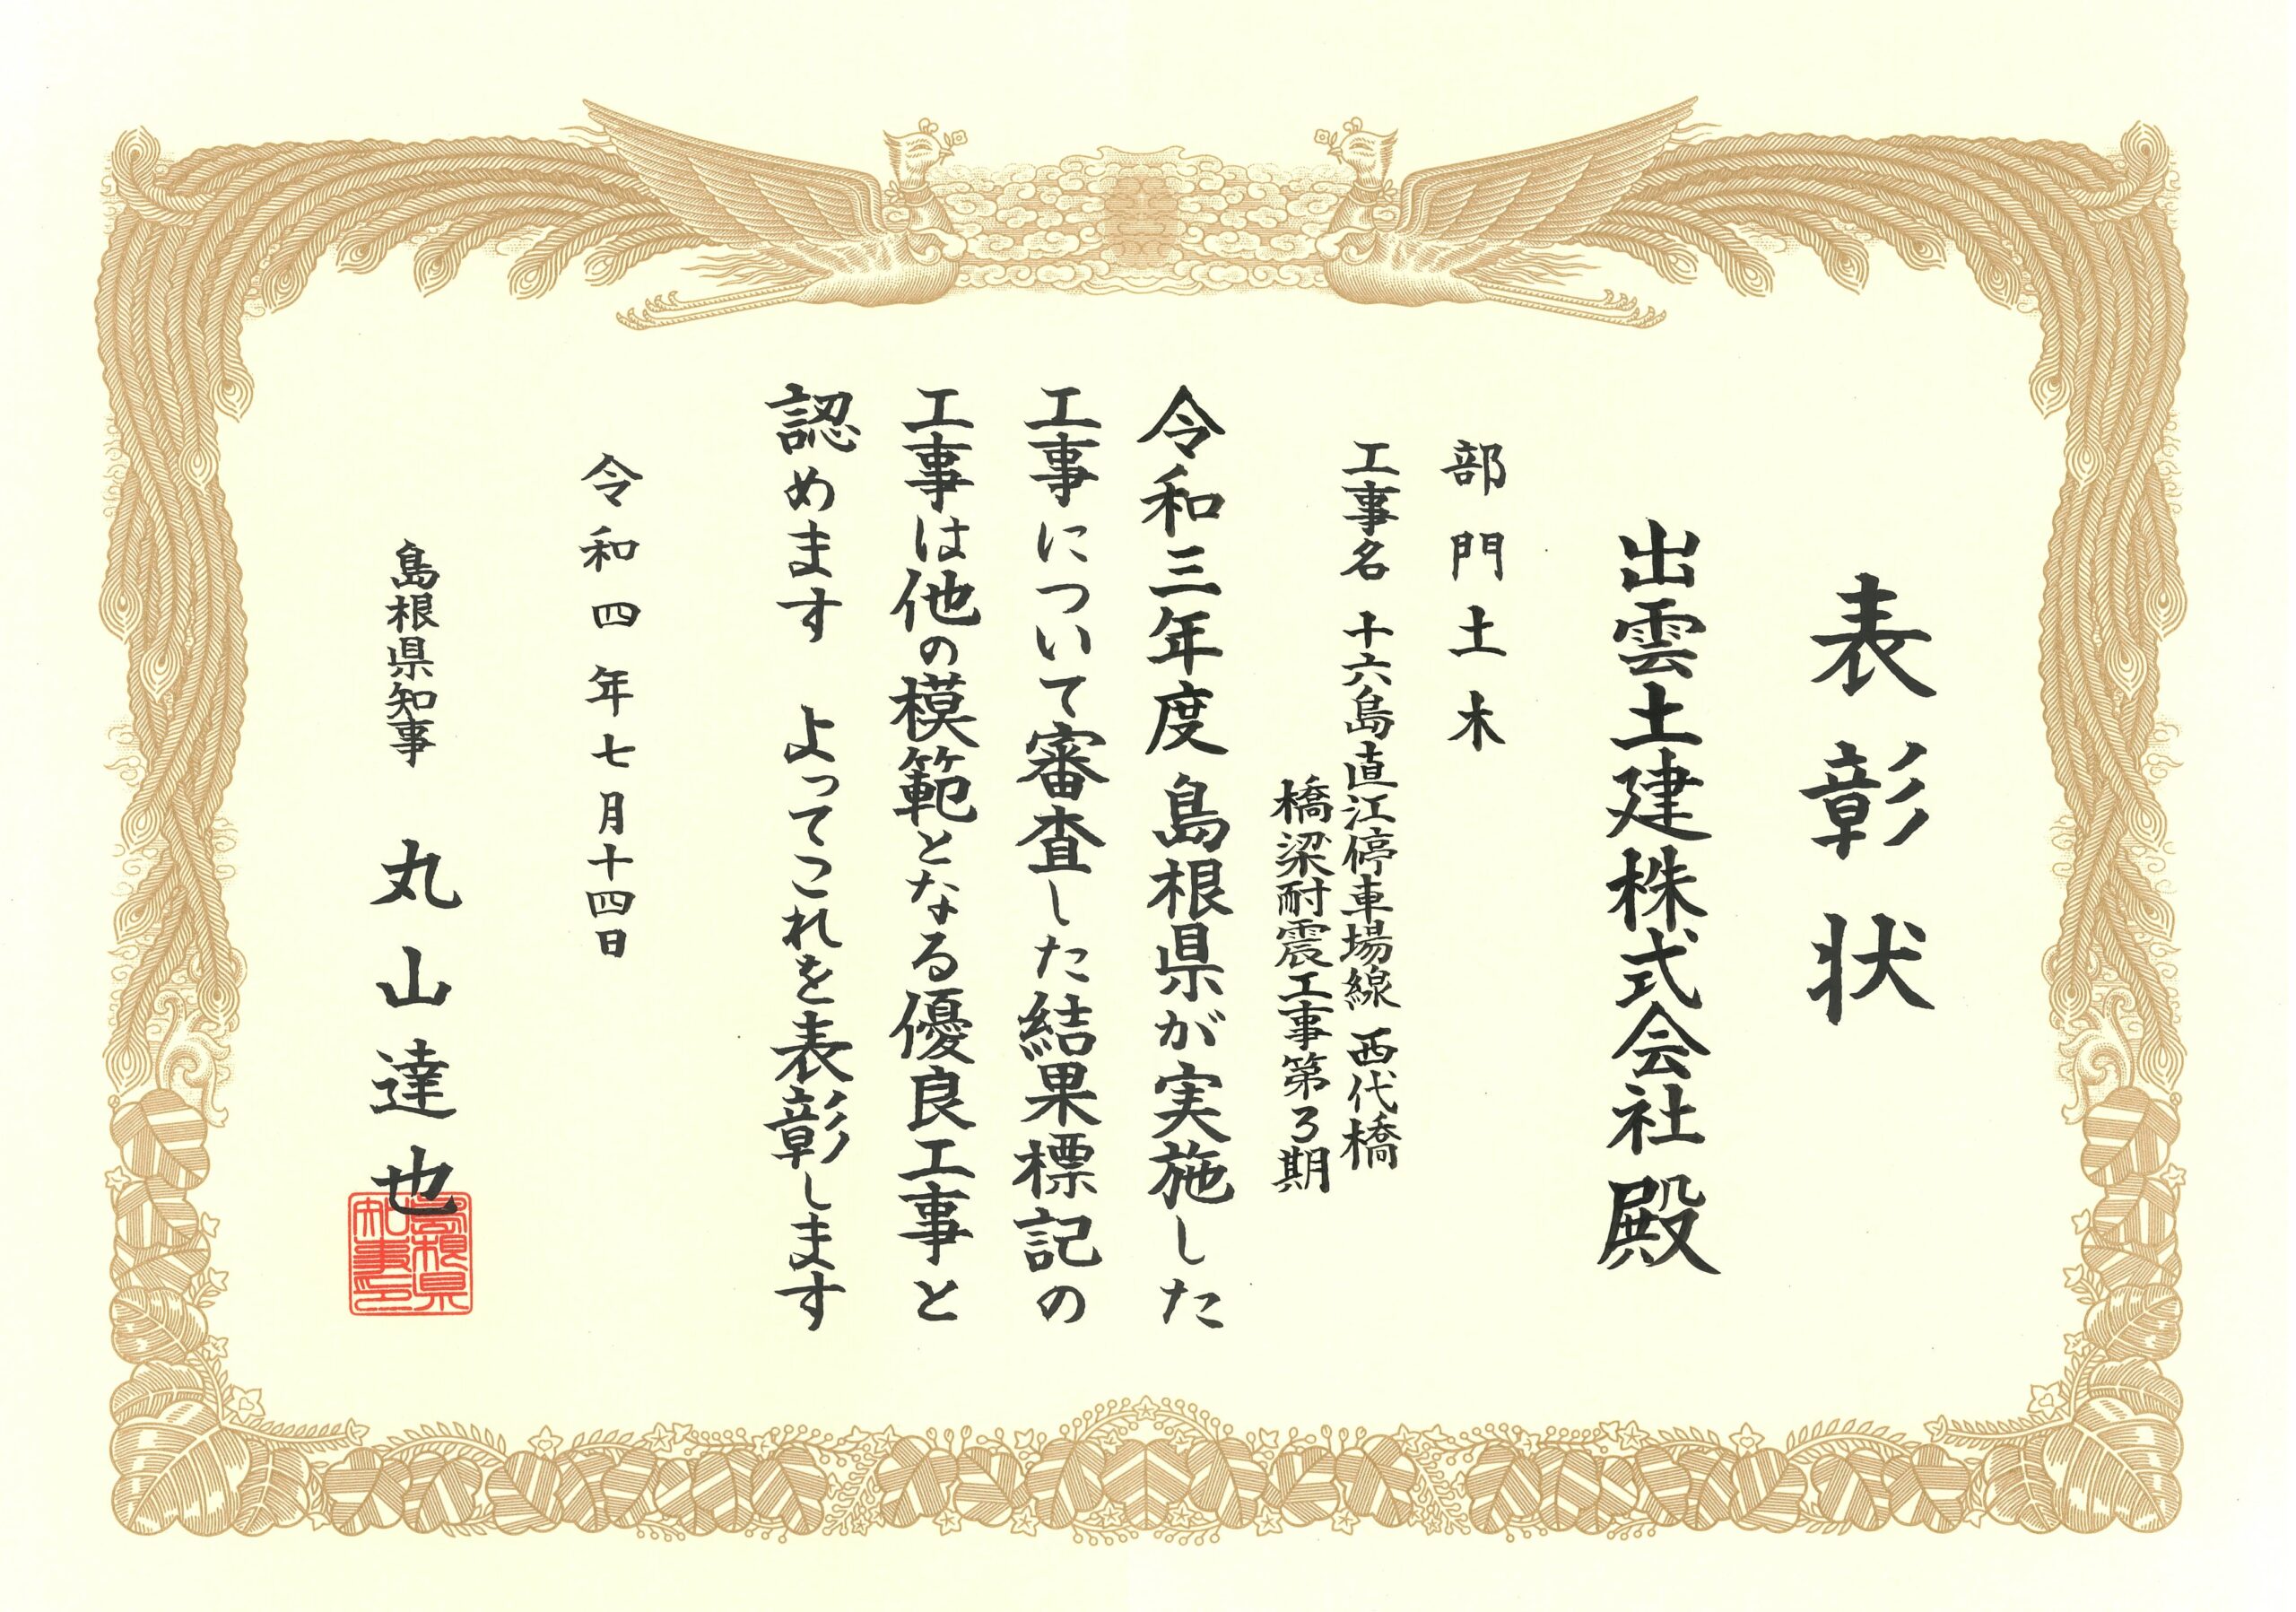 表彰状
出雲土建株式会社 殿
部門 土木
工事名 十六島直江停車場線 西代橋
橋梁耐震工事第3期
令和三年度島根県が実施した
工事について審査した結果標記の
工事は他の模範となる優良工事と
認めます よってこれを表彰します
令和四年七月十四日
島根県知事 丸山達也
島根県
知事印